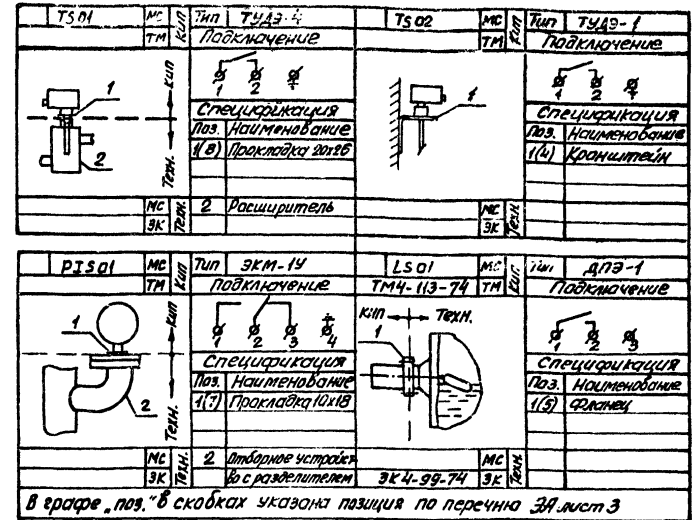 TS01 МС КИП Тип ТУДЭ-4
ТМ Подключение
1 2
КИП
Техн.
1
2
Спецификация
Поз. Наименование
1(8) Прокладка 20х26
МС Техн. 2 Расширитель
ЭК
TS02 МС КИП Тип ТУДЭ-1
ТМ Подключение
1 2
1
Спецификация
Поз. Наименование
1(4) Кронштейн
МС Техн.
ЭК
PIS01 МС КИП Тип ЭКМ-1У
ТМ Подключение
1 2 3 4
КИП
Техн.
1
2
Спецификация
Поз. Наименование
1(7) Прокладка 10х18
МС Техн. 2 Отборное устройст-
ЭК во с разделителем
LS01 МС КИП Тип ДПЭ-1
ТМ4-113-74 ТМ Подключение
КИП Техн.
1
1 2 3
Спецификация
Поз. Наименование
1(5) Фланец
МС Техн.
ЭК4-99-74 ЭК
В графе „поз." в скобках указана позиция по перечню ЭА лист 3